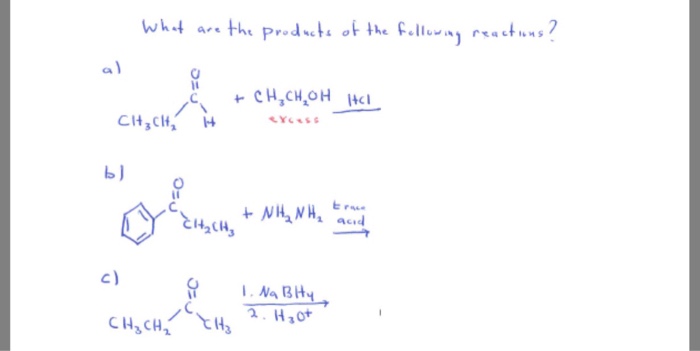 What are the products of the following reactions?
a)
O
C
CH₃CH₂ H
+ CH₃CH₂OH HCl
excess
b)
O
C
CH₂CH₃
+ NH₂NH₂ trace
acid
c)
O
C
CH₃CH₂ CH₃
1. NaBH4
2. H₃O+